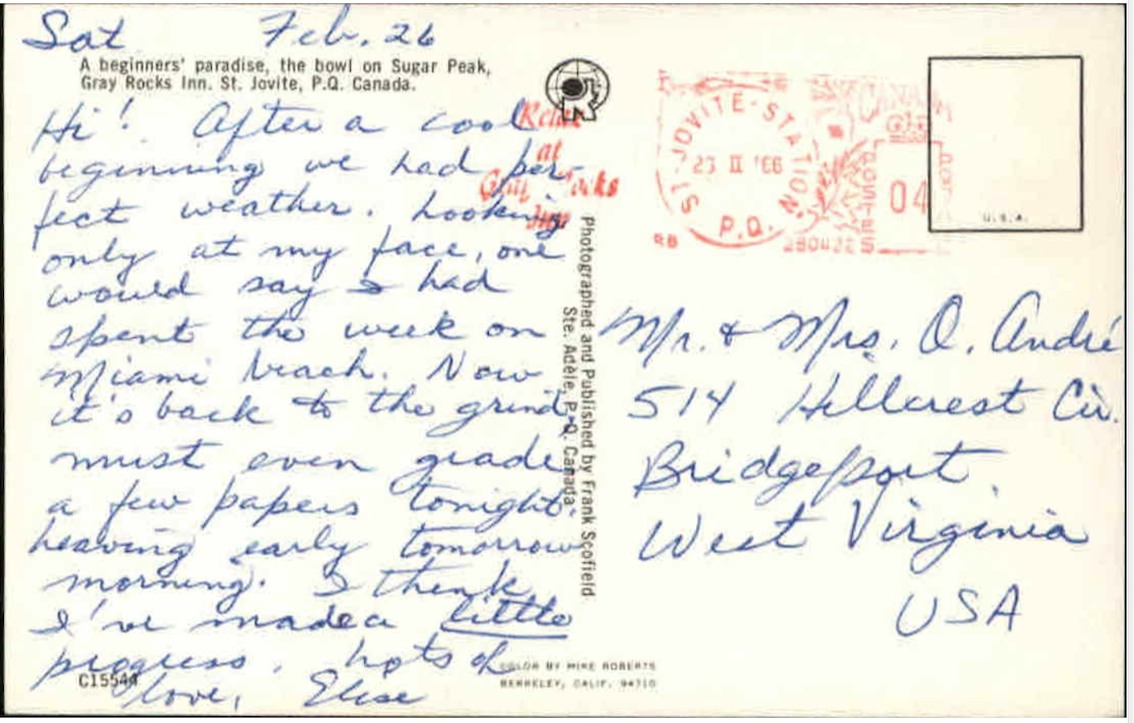 Sat Feb. 26
A beginners' paradise, the bowl on Sugar Peak,
Gray Rocks Inn. St. Jovite, P.Q. Canada.
Hi! After a cool
beginning we had per-
fect weather. Looking
only at my face, one
would say I had
spent the week on
Miami beach. Now
it's back to the grind,
must even grade
a few papers tonight.
Leaving early tomorrow
morning. I think
I've made a little
progress. Lots of
love, Elise
C15544
Relax
at
Gray Rocks
Inn
Photographed and Published by Frank Scofield
Ste. Adèle, P.Q. Canada
COLOR BY MIKE ROBERTS
BERKELEY, CALIF. 94710
ST-JOVITE-STATION.
II '66
P.Q.
CANADA
POSTES
04
U.S.A.
Mr. & Mrs. O. André
514 Hillcrest Cir.
Bridgeport
West Virginia
USA